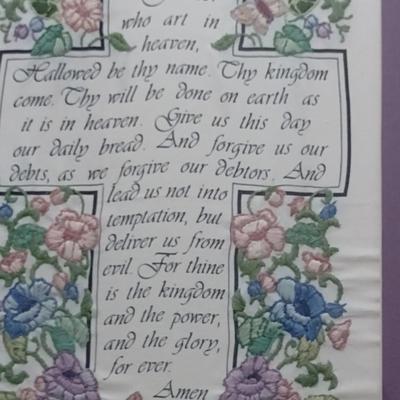 who art in
heaven,
Hallowed be thy name. Thy kingdom
come. Thy will be done on earth as
it is in heaven. Give us this day
our daily bread. And forgive us our
debts, as we forgive our debtors. And
lead us not into
temptation, but
deliver us from
evil. For thine
is the kingdom
and the power,
and the glory,
for ever.
Amen